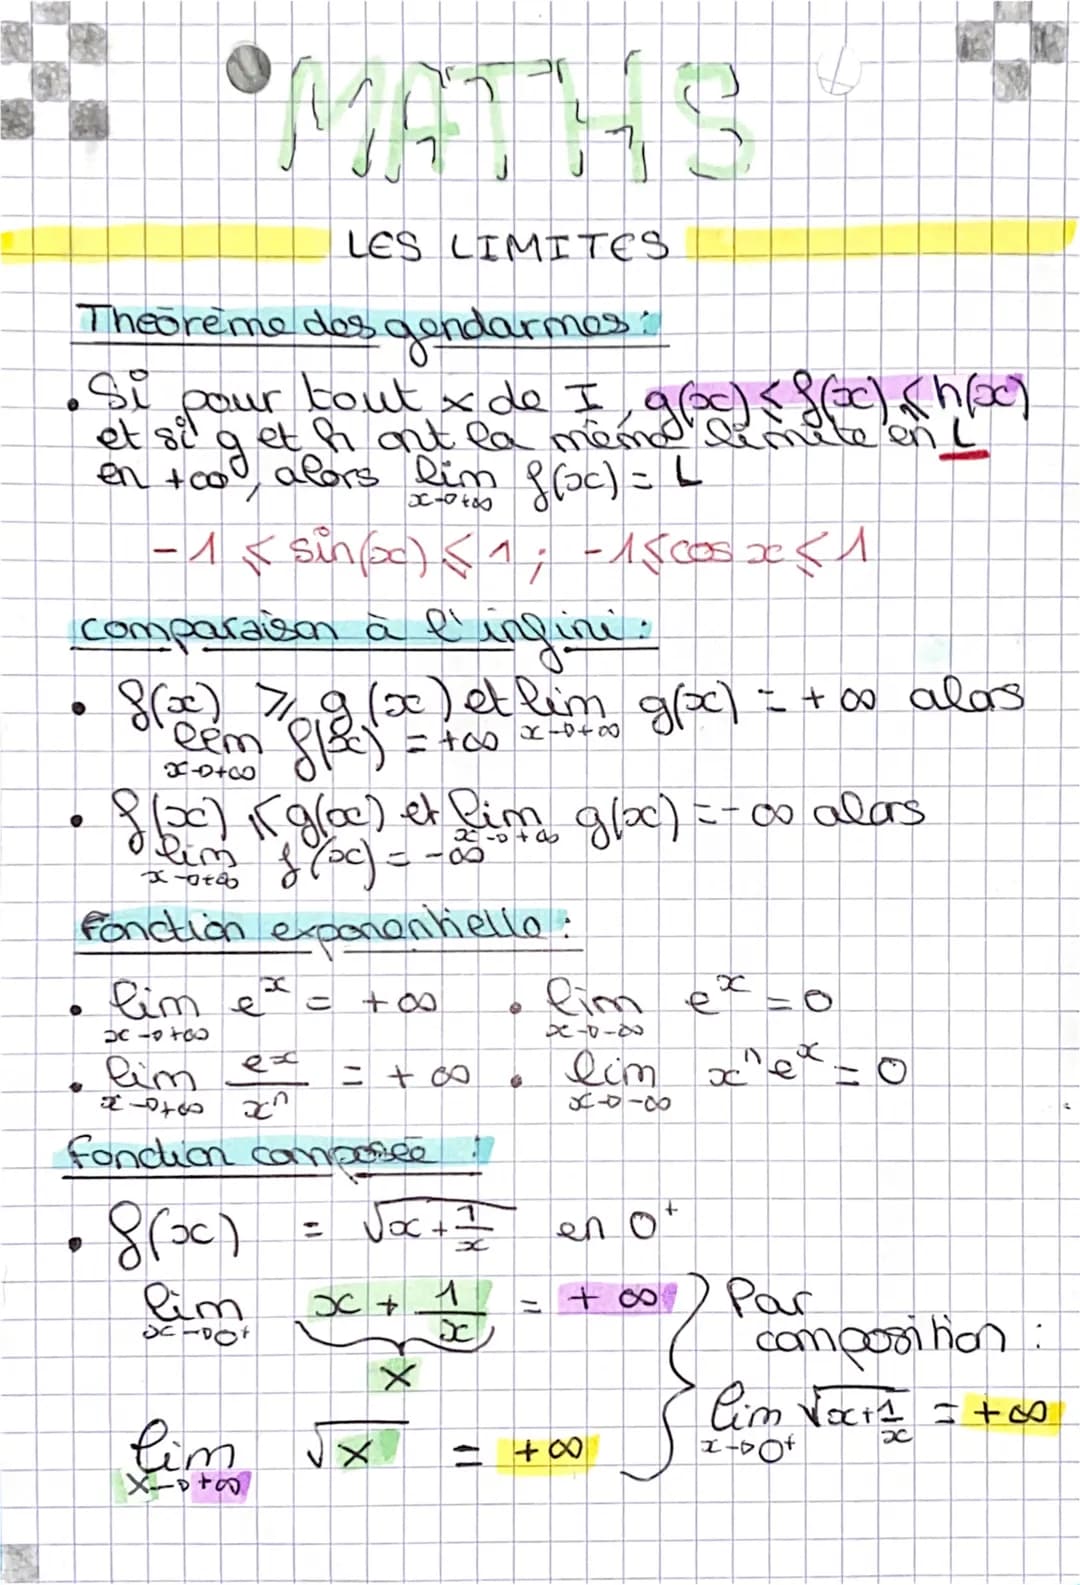 MATHS
LES LIMITES
Théorème des gendarmes :
• Si pour tout x de I, g(x) ⩽ f(x) ⩽ h(x)
et si g et h ont la même limite en L
en +∞, alors lim f(x) = L
x→+∞
-1 ⩽ sin(x) ⩽ 1 ; -1 ⩽ cos x ⩽ 1
comparaison à l'infini :
• f(x) ⩾ g(x) et lim g(x) = +∞ alors
x→+∞
lim f(x) = +∞
x→+∞
• f(x) ⩽ g(x) et lim g(x) = -∞ alors
x→+∞
lim f(x) = -∞
x→+∞
Fonction exponentielle :
• lim eˣ = +∞ • lim eˣ = 0
x→+∞ x→-∞
• lim eˣ/xⁿ = +∞ • lim xⁿeˣ = 0
x→+∞ x→-∞
Fonction composée :
• f(x) = √(x + 1/x) en 0⁺
lim x + 1/x = +∞ } Par
x→0⁺ composition :
X
lim √(x + 1/x) = +∞
x→0⁺
lim √X = +∞
X→+∞